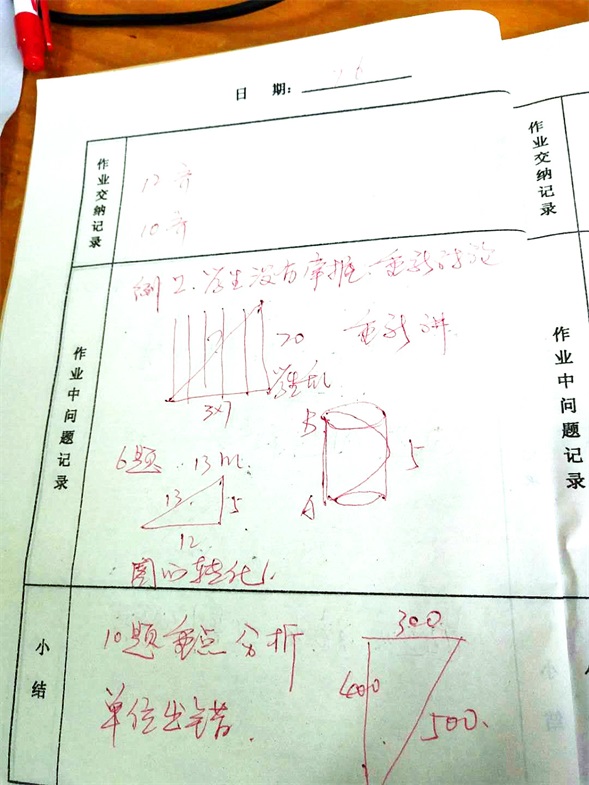 日 期:
作业交纳记录
12齐
10齐
作业中问题记录
例2.学生没有掌握.重新讨论
重新讲
20
学生乱
3×7
B
5
A
6题 13m.
13
5
12
图的转化
小结
10题重点分析.
单位出错.
300.
400
500.
作业交纳记录
作业中问题记录